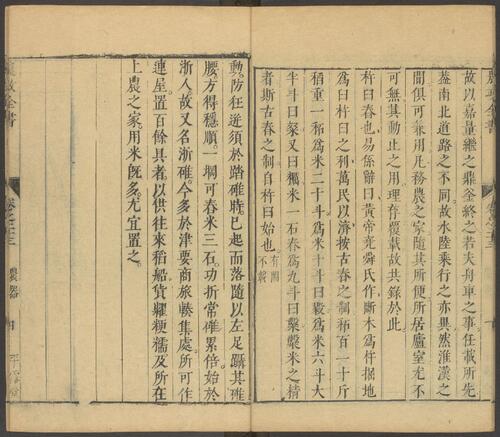 故以嘉量繼之鼎釜終之若夫舟車之事任載所先
蓋南北道路之不同故水陸乘行之亦異然淮漢之
間俱可兼用凡務農之家隨其所便所居廬室尤不
可無其動止之用理存覆載故共錄於此
杵臼舂也易係辭曰黃帝堯舜氏作斷木爲杵掘地
爲臼杵臼之利萬民以濟按古舂之制䄷百二十斤
稻重一䄷爲米二十斗爲米十斗曰毇爲米六斗大
半斗曰粲又曰糲米一石舂爲九斗曰糳糳米之精
者斯古舂之制自杵臼始也
有圖
不載
動防徃迓須於踏碓時已起而落隨以左足躡其碓
腰方得穩順一堈可舂米三石功折常碓累倍始於
浙人故又名浙碓今多於津要商旅輳集處所可作
連屋置百餘具者以供往來稻船貨糶粳糯及所在
上農之家用米旣多尤宜置之
農政全書
卷之二十三
農器
四